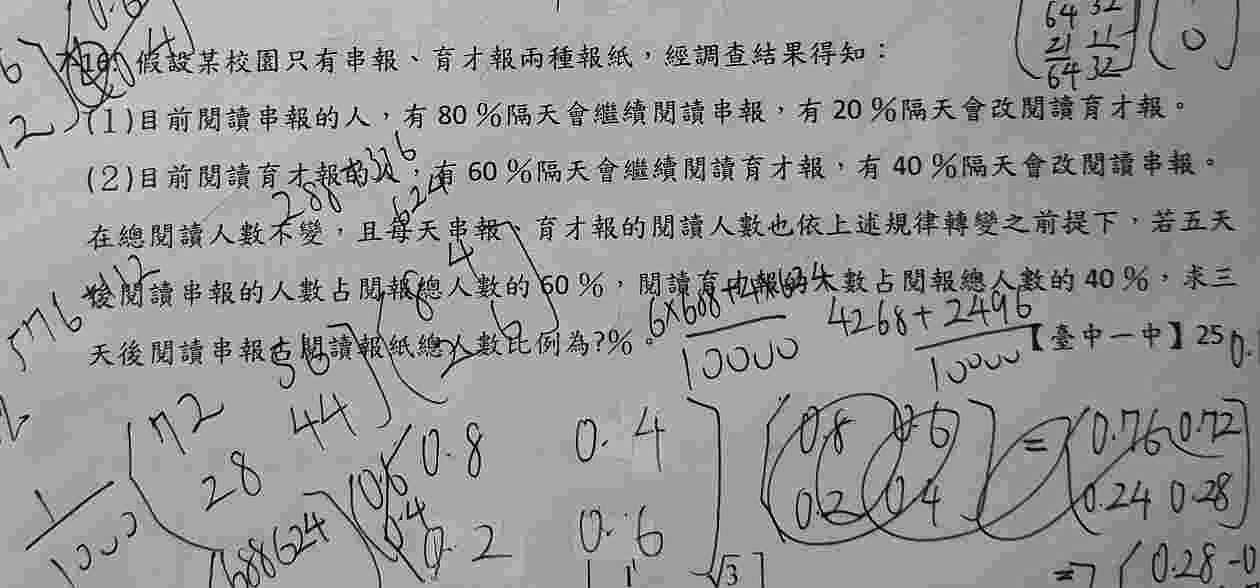 64 32
21 11
64 32
0
假設某校園只有串報、育才報兩種報紙，經調查結果得知：
(1)目前閱讀串報的人，有 80 %隔天會繼續閱讀串報，有 20 %隔天會改閱讀育才報。
(2)目前閱讀育才報的人，有 60 %隔天會繼續閱讀育才報，有 40 %隔天會改閱讀串報。
288+336
624
在總閱讀人數不變，且每天串報、育才報的閱讀人數也依上述規律轉變之前提下，若五天
後閱讀串報的人數占閱報總人數的 60 %，閱讀育才報的人數占閱報總人數的 40 %，求三
576
天後閱讀串報占閱讀報紙總人數比例為?%。
【臺中一中】25
10000
4268+2496
10000
72 56
28 44
1
1000
688624
0.8 0.4
0.2 0.6
0.8 0.6
0.2 0.4
=
0.76 0.72
0.24 0.28
√3
0.28